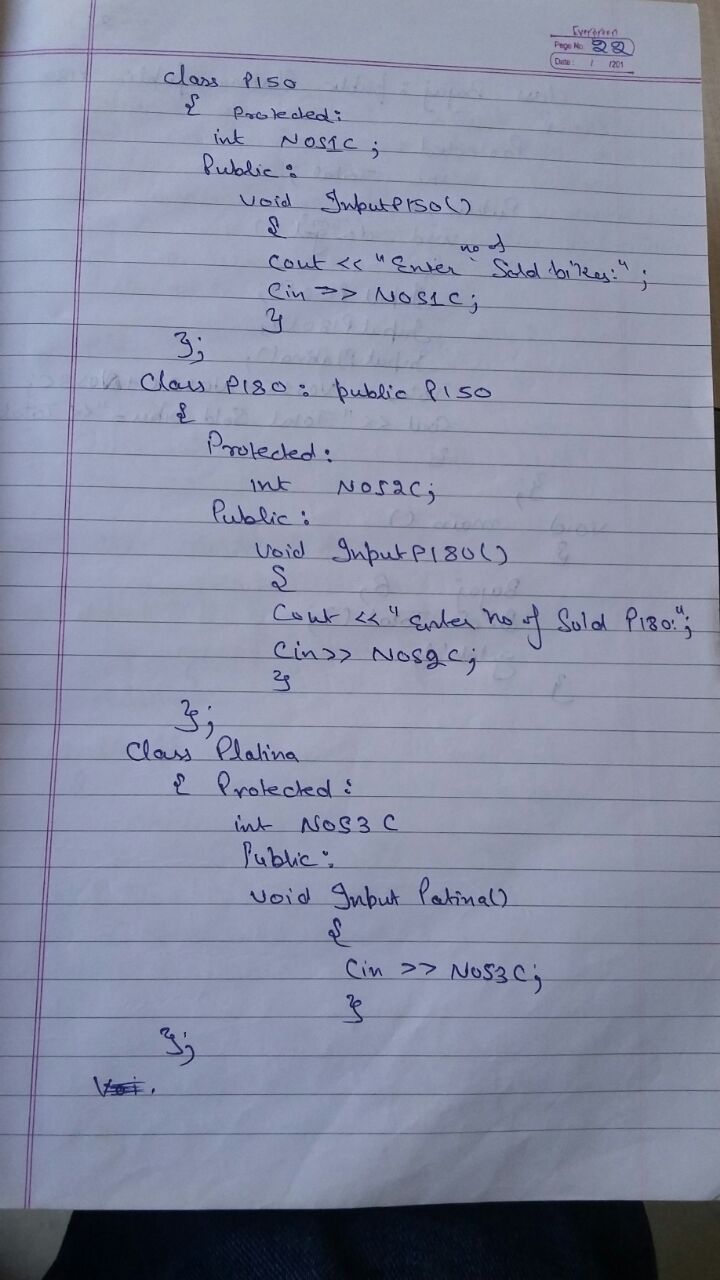 Evergreen
Page No. 22
Date: / /201
class P150
{ Protected:
int NOS1C;
Public:
void InputP150()
{
no of
Cout << "Enter Sold bikes:";
Cin >> NOS1C;
}
};
Class P180: public P150
{
Protected:
int NOS2C;
Public:
void InputP180()
{
Cout << "Enter no of Sold P180:";
Cin>> NOS2C;
}
};
Class Platina
{ Protected:
int NOS3C
Public:
void Input Patina()
{
Cin >> NOS3C;
}
};